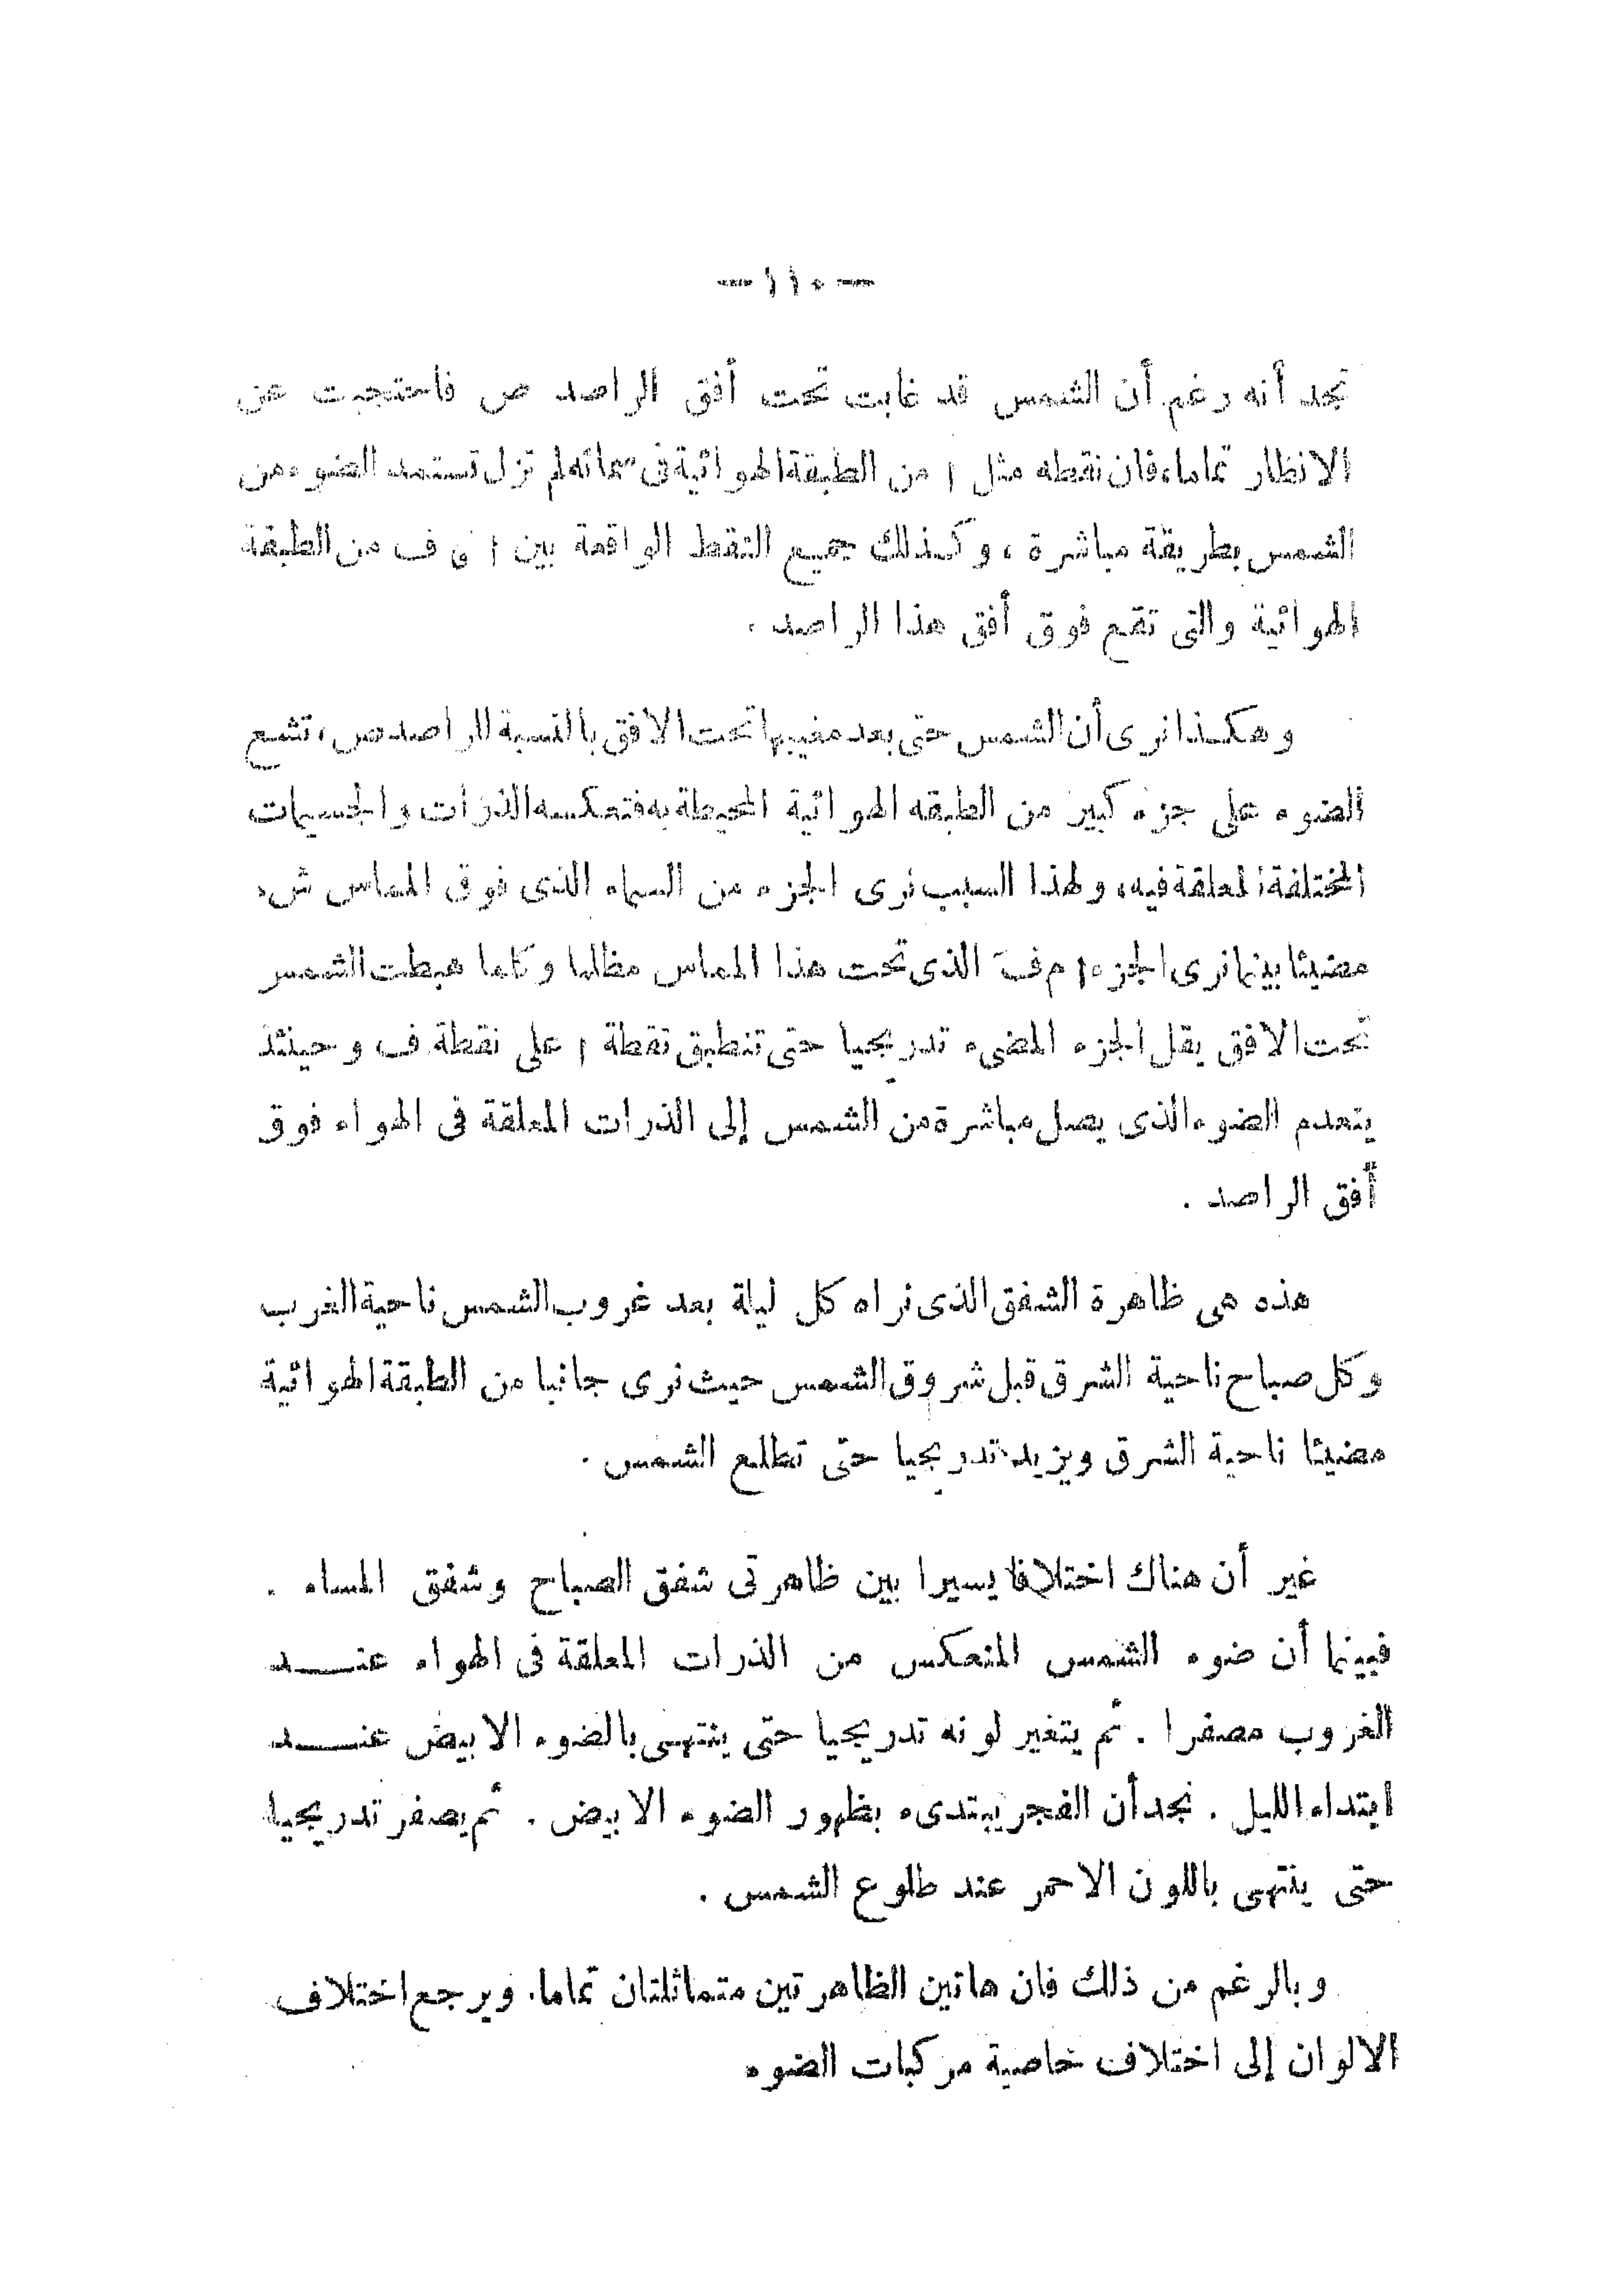 — ١١٠ —
تجد أنه رغم أن الشمس قد غابت تحت أفق الراصد ص فاحتجبت عن
الانظار تماما، فان نقطه مثل ا من الطبقة الهوائية فى سمائه لم تزل تستمد الضوء من
الشمس بطريقة مباشرة ، وكذلك جميع النقط الواقعة بين ا ى ف من الطبقة
الهوائية والتى تقع فوق أفق هذا الراصد .
وهكذا نرى أن الشمس حتى بعد مغيبها تحت الافق بالنسبة للراصد ص ، تشع
الضوء على جزء كبير من الطبقه الهوائية المحيطة به فتعكسه الذرات والجسيمات
المختلفة المعلقة فيه، ولهذا السبب نرى الجزء من السماء الذى فوق المماس ش
مضيئا بينما نرى الجزء ا م ف الذى تحت هذا المماس مظلما وكلما هبطت الشمس
تحت الافق يقل الجزء المضىء تدريجيا حتى تنطبق نقطة ا على نقطة ف وحينئذ
ينعدم الضوء الذى يصل مباشرة من الشمس إلى الذرات المعلقة فى الهواء فوق
أفق الراصد .
هذه هى ظاهرة الشفق الذى نراه كل ليلة بعد غروب الشمس ناحية الغرب
وكل صباح ناحية الشرق قبل شروق الشمس حيث نرى جانبا من الطبقة الهوائية
مضيئا ناحية الشرق ويزيد تدريجيا حتى تطلع الشمس .
غير أن هناك اختلافا يسيرا بين ظاهرتى شفق الصباح وشفق المساء .
فبينما أن ضوء الشمس المنعكس من الذرات المعلقة فى الهواء عنـــد
الغروب مصفرا . ثم يتغير لونه تدريجيا حتى ينتهى بالضوء الابيض عنـــد
ابتداء الليل . نجد أن الفجر يبتدىء بظهور الضوء الابيض . ثم يصفر تدريجيا
حتى ينتهى باللون الاحمر عند طلوع الشمس .
وبالرغم من ذلك فان هاتين الظاهرتين متماثلتان تماما. ويرجع اختلاف
الالوان إلى اختلاف خاصية مركبات الضوء